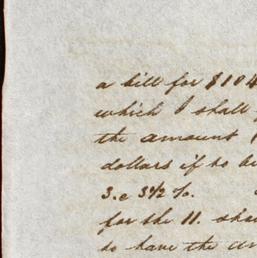 a bill for $104
which I shall
the amount
dollars if so be
3.c 3½ %.
for the 11. shar
to have the am